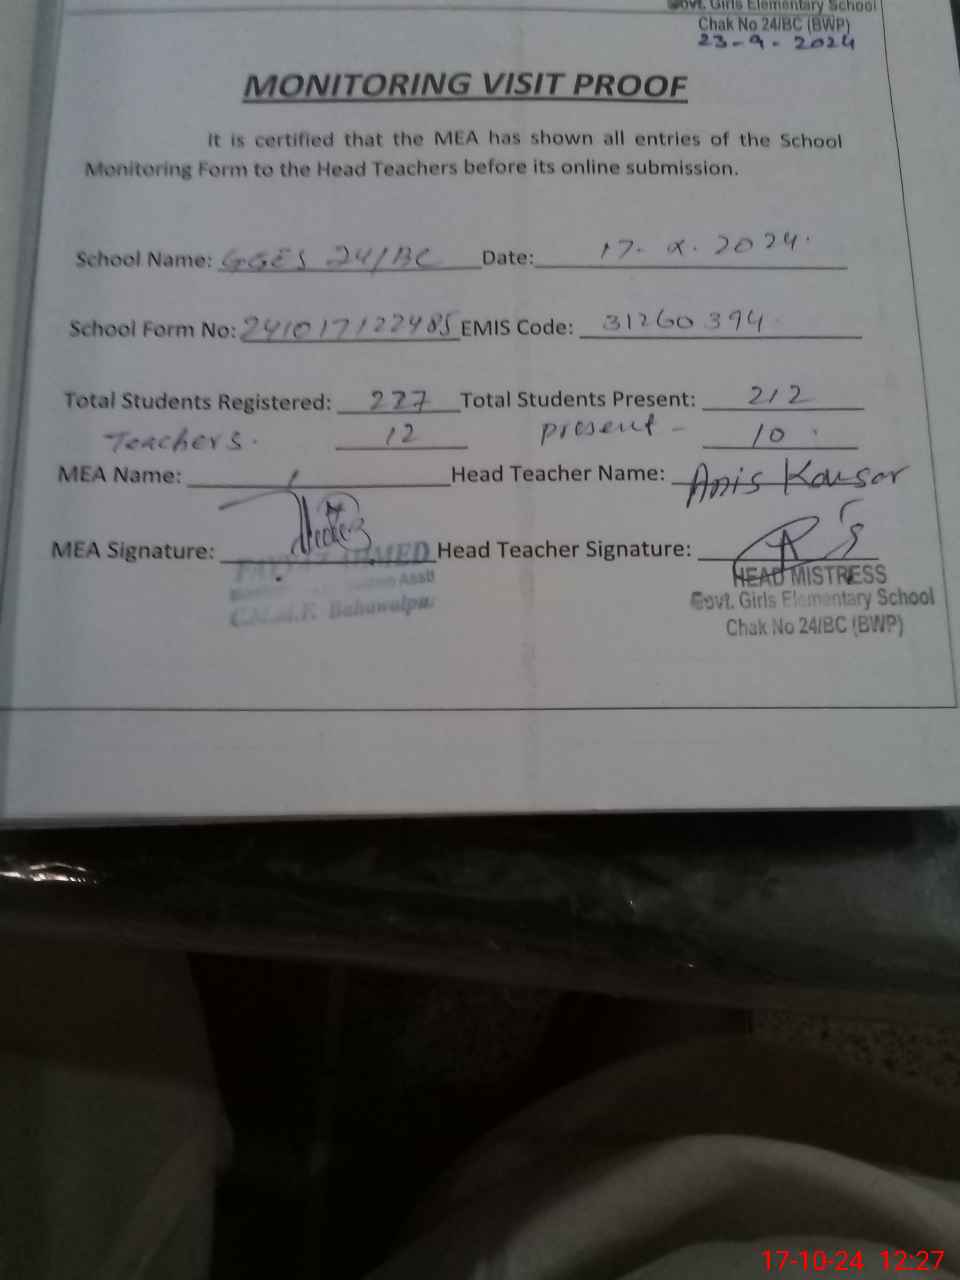 Govt. Girls Elementary School
Chak No 24/BC (BWP)
23-9-2024
MONITORING VISIT PROOF
It is certified that the MEA has shown all entries of the School
Monitoring Form to the Head Teachers before its online submission.
School Name: GGES 24/BC Date: 17- α. 2024.
School Form No: 241017122485 EMIS Code: 31260394
Total Students Registered: 227 Total Students Present: 212
Teachers. 12 present - 10
MEA Name: Head Teacher Name: Anis Kousar
MEA Signature: Head Teacher Signature:
AHMED HEAD MISTRESS
Asstt Govt. Girls Elementary School
Bahawalpur Chak No 24/BC (BWP)
17-10-24 12:27